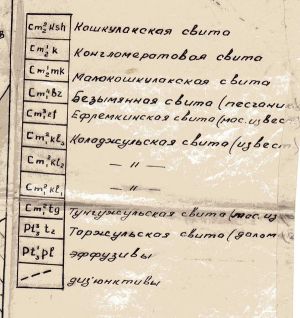 Cm₂² Ksh Кошкулакская свита
Cm₂¹ k Конгломератовая свита
mk Малокошкулакская свита
bz Безымянная свита (песчани
ef Ефремкинская свита (мас. извес
kl₃ Колоджульская свита (извест
kl₂ — " —
kl₁ — " —
tg Тунгужульская свита (мас. из
tz Торжульская свита (долом
pl эффузивы
дизъюнктивы